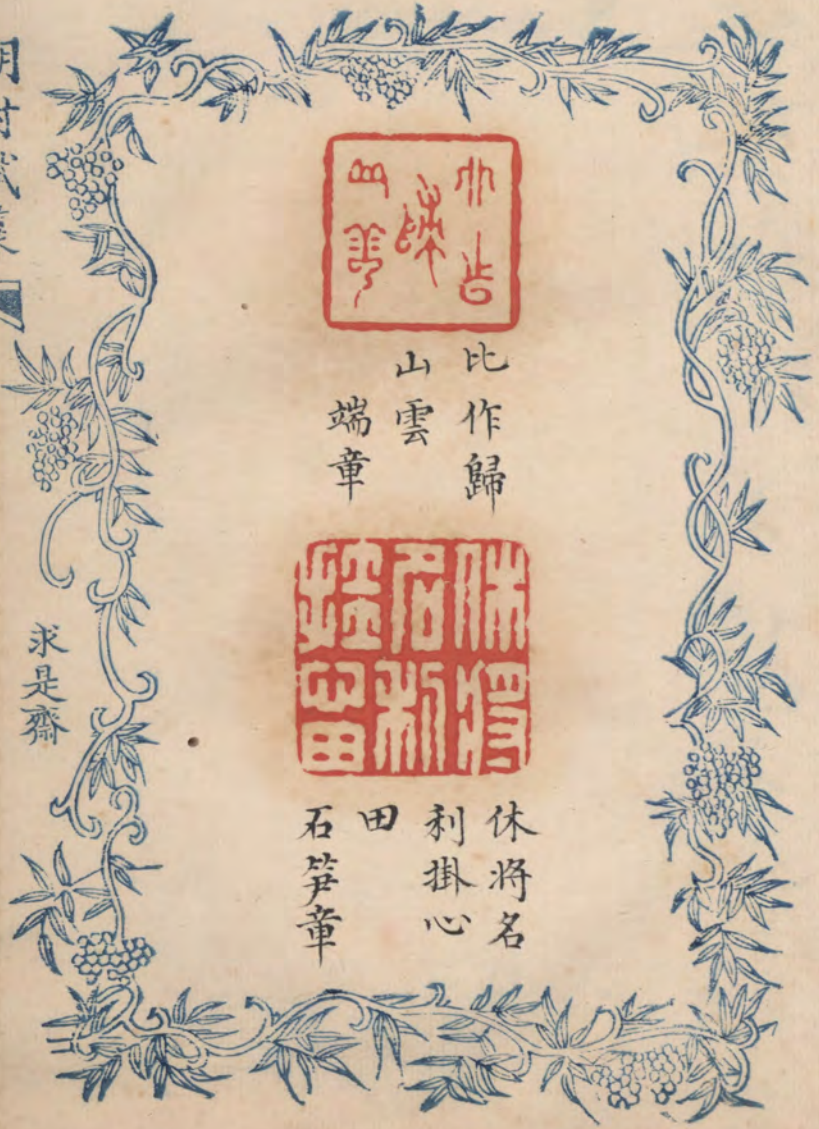 比作歸
山雲
端章
休將名
利掛心
田
石笋章
求是齋